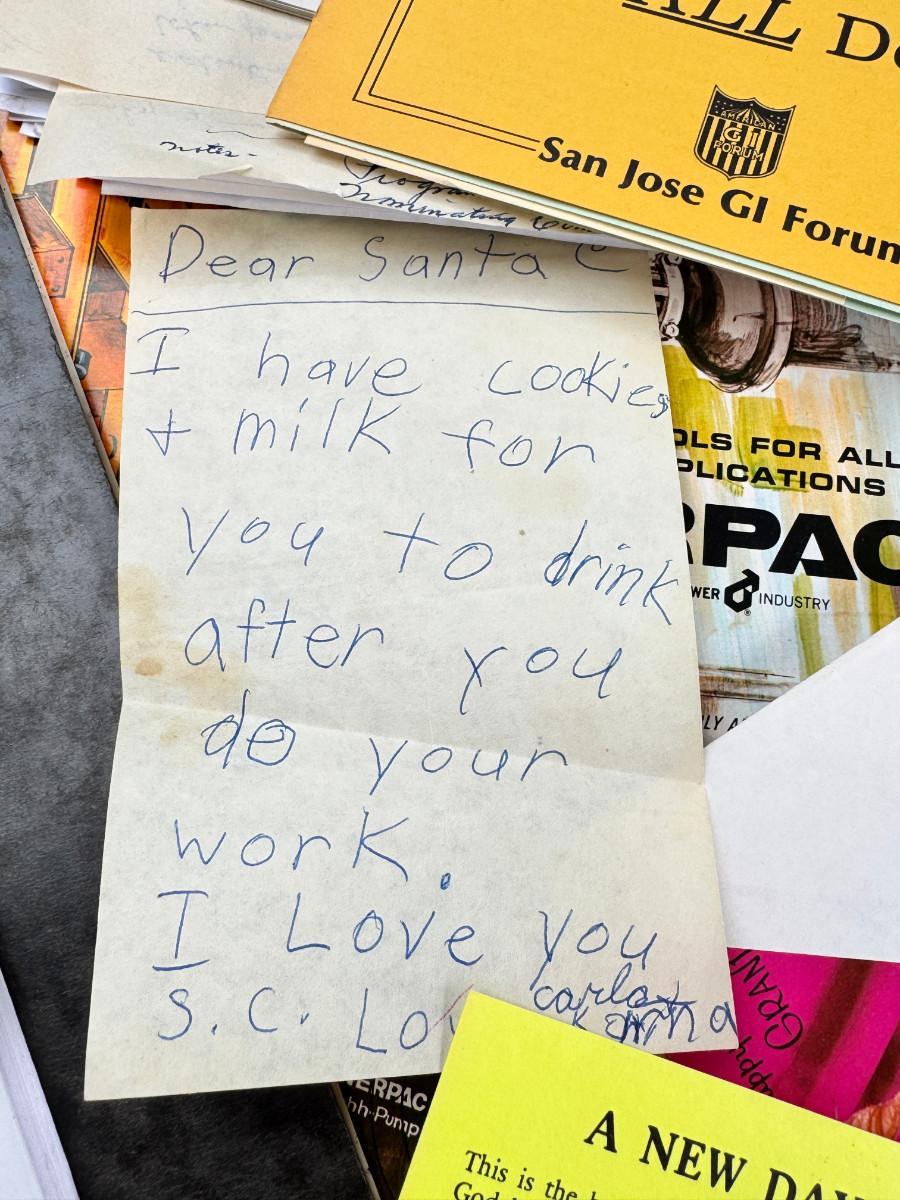 ALL
San Jose GI Forum
AMERICAN
GI
FORUM
notes-
Dear Santa C
I have cookies
+ milk for
you to drink
after you
do your
work.
I Love you
S.C. Lo
carla +
OLS FOR ALL
PLICATIONS
RPAC
WER
INDUSTRY
LY A
GRAN
appy
ERPAC
hh-Pump
A NEW DAY
This is the b
God